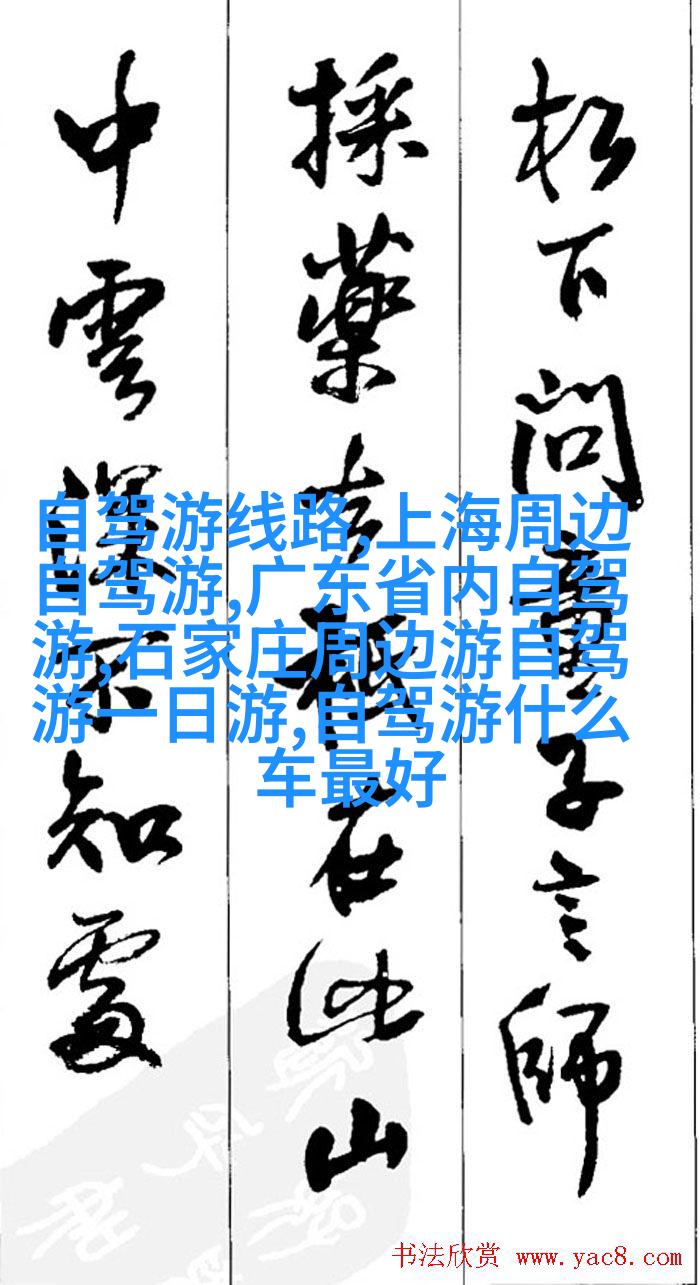 松下问童子言師
採薬去祇在此山
中雲深不知處
自驾游线路,上海周边
自驾游,广东省内自驾
游,石家庄周边游自驾
游一日游,自驾游什么
车最好
书法欣赏 www.yac8.com